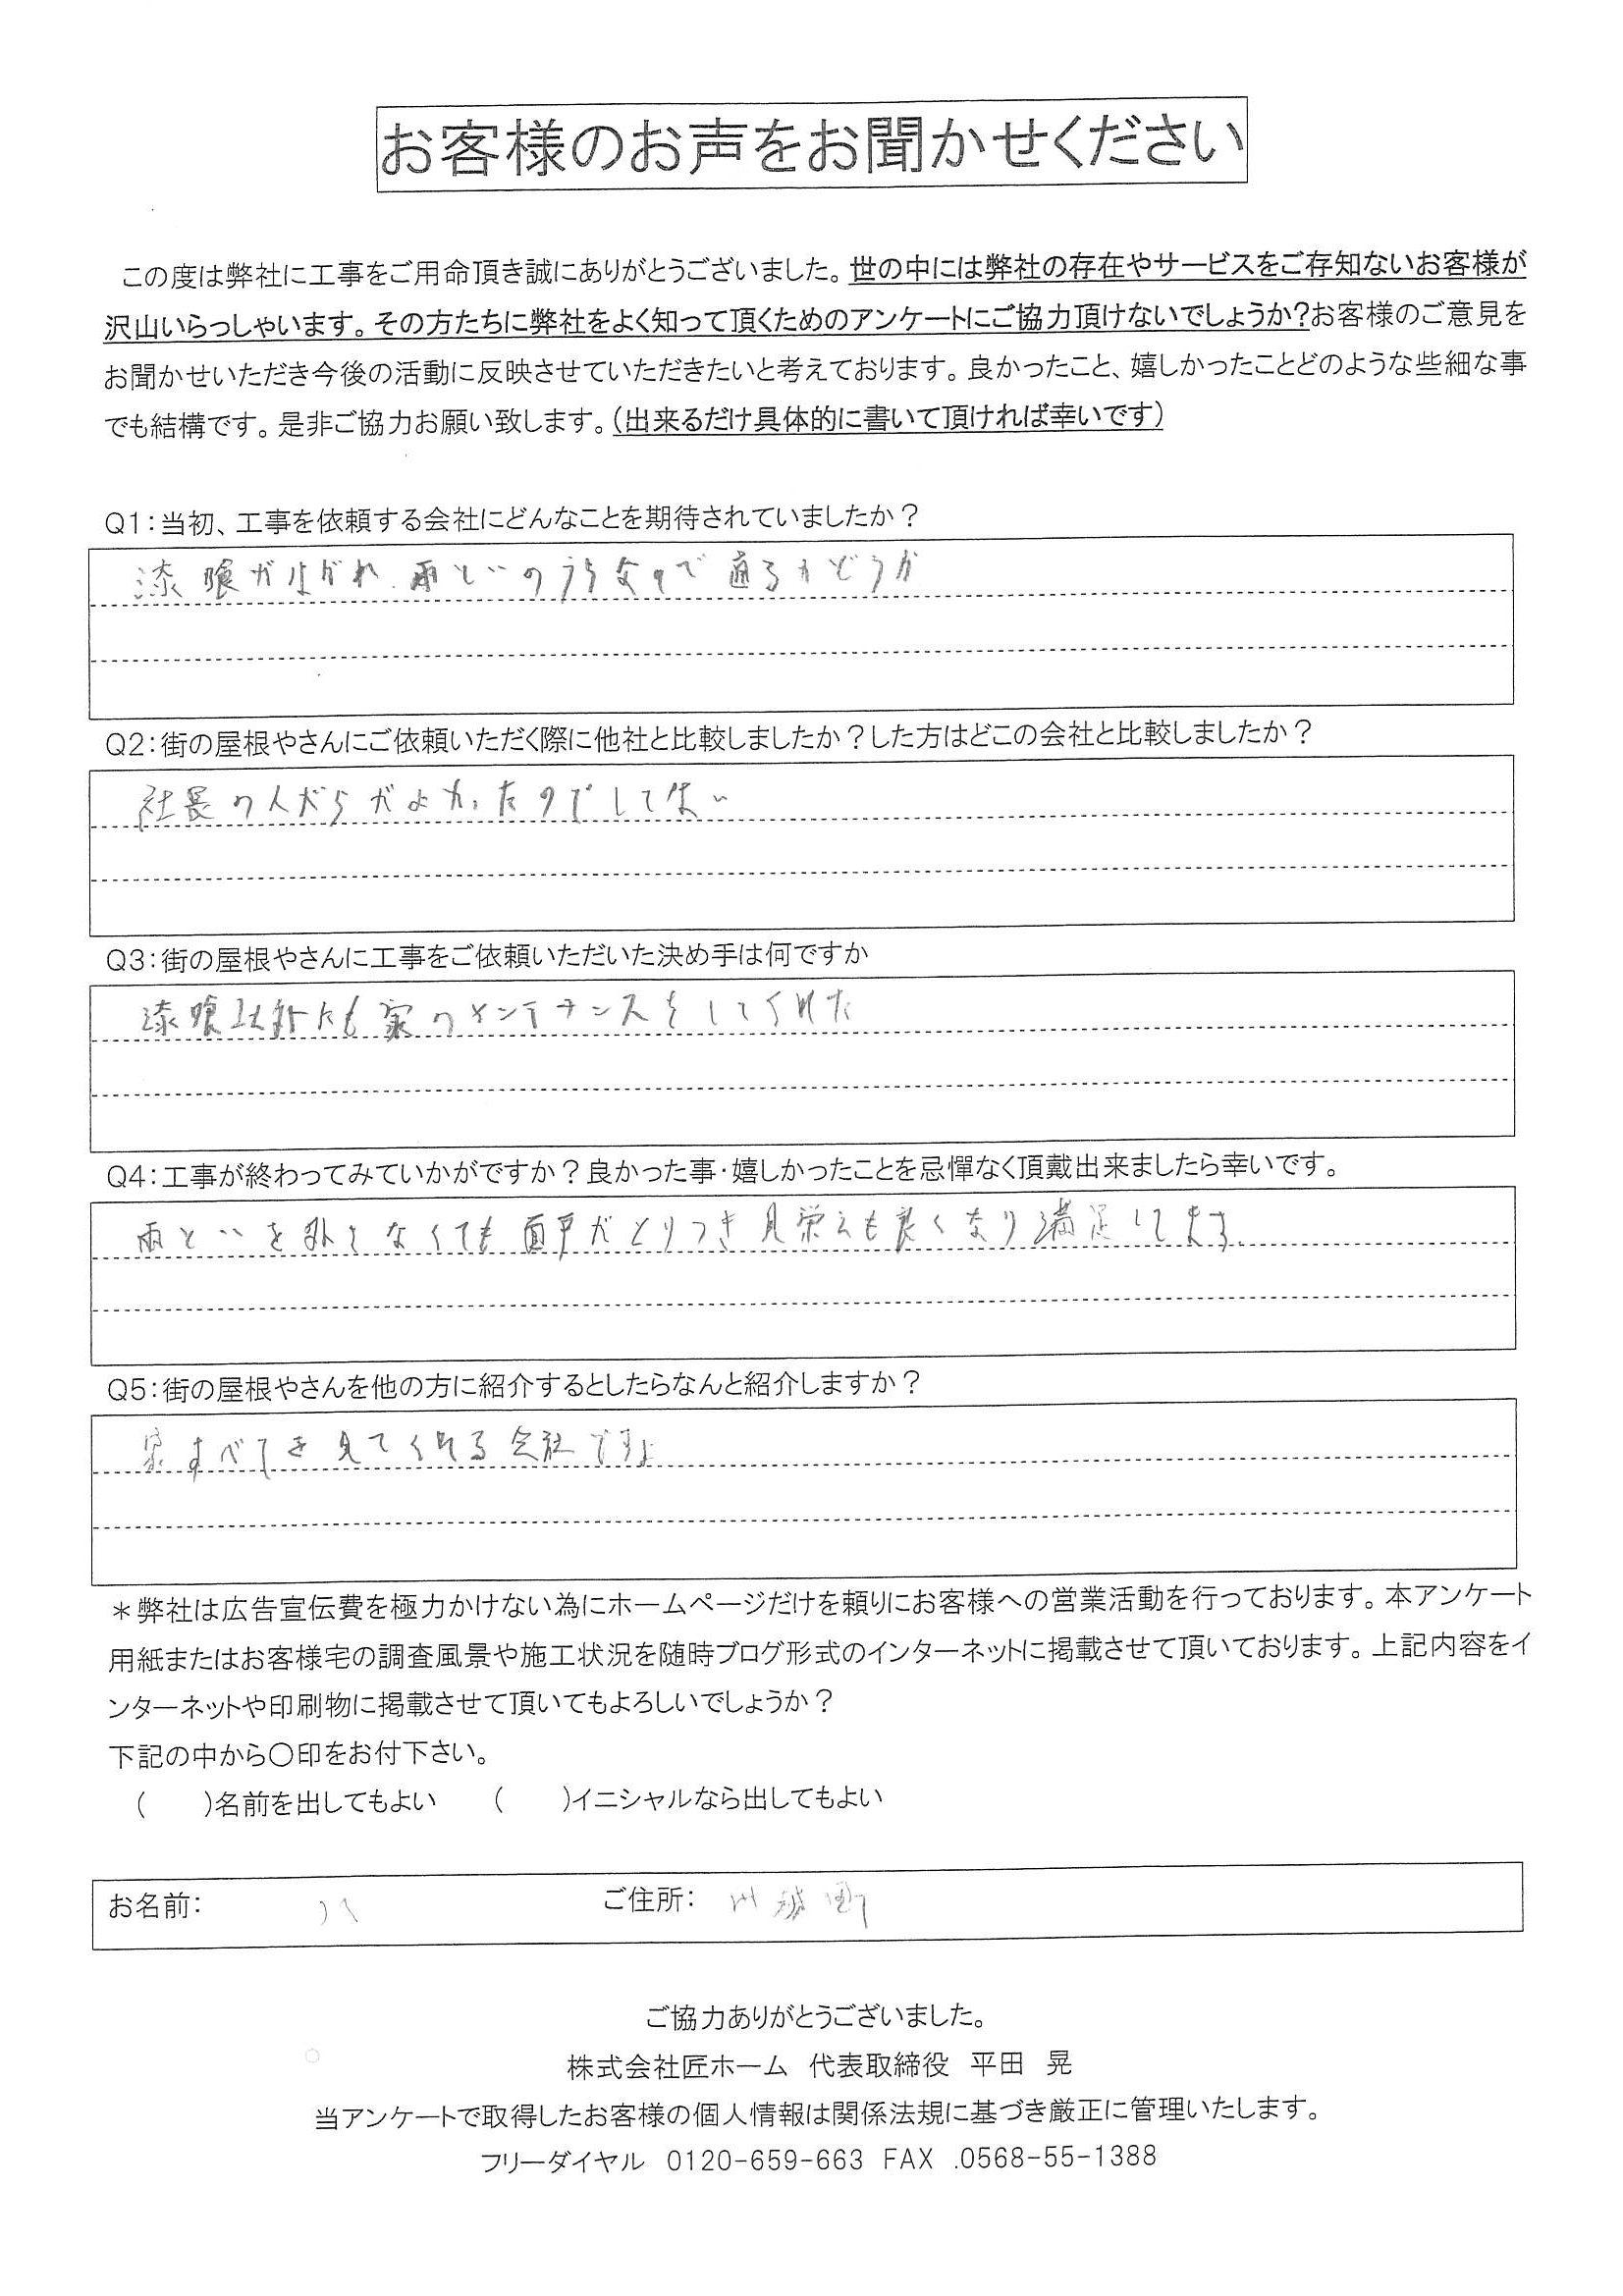 お客様のお声をお聞かせください
この度は弊社に工事をご用命頂き誠にありがとうございました。世の中には弊社の存在やサービスをご存知ないお客様が
沢山いらっしゃいます。その方たちに弊社をよく知って頂くためのアンケートにご協力頂けないでしょうか?お客様のご意見を
お聞かせいただき今後の活動に反映させていただきたいと考えております。良かったこと、嬉しかったことどのような些細な事
でも結構です。是非ご協力お願い致します。(出来るだけ具体的に書いて頂ければ幸いです)
Q1:当初、工事を依頼する会社にどんなことを期待されていましたか?
漆喰がはがれ、雨といのうらなので直るかどうか
Q2:街の屋根やさんにご依頼いただく際に他社と比較しましたか?した方はどこの会社と比較しましたか?
社長の人がらがよかったのでしてない
Q3:街の屋根やさんに工事をご依頼いただいた決め手は何ですか
漆喰以外にも家のメンテナンスをしてくれた
Q4:工事が終わってみていかがですか?良かった事・嬉しかったことを忌憚なく頂戴出来ましたら幸いです。
雨といを外さなくても面戸がとりつき見栄えも良くなり満足してます
Q5:街の屋根やさんを他の方に紹介するとしたらなんと紹介しますか?
家すべてを見てくれる会社ですよ
*弊社は広告宣伝費を極力かけない為にホームページだけを頼りにお客様への営業活動を行っております。本アンケート
用紙またはお客様宅の調査風景や施工状況を随時ブログ形式のインターネットに掲載させて頂いております。上記内容をイ
ンターネットや印刷物に掲載させて頂いてもよろしいでしょうか?
下記の中から〇印をお付下さい。
( )名前を出してもよい ( )イニシャルなら出してもよい
お名前: ご住所:
ご協力ありがとうございました。
株式会社匠ホーム 代表取締役 平田 晃
当アンケートで取得したお客様の個人情報は関係法規に基づき厳正に管理いたします。
フリーダイヤル 0120-659-663 FAX .0568-55-1388